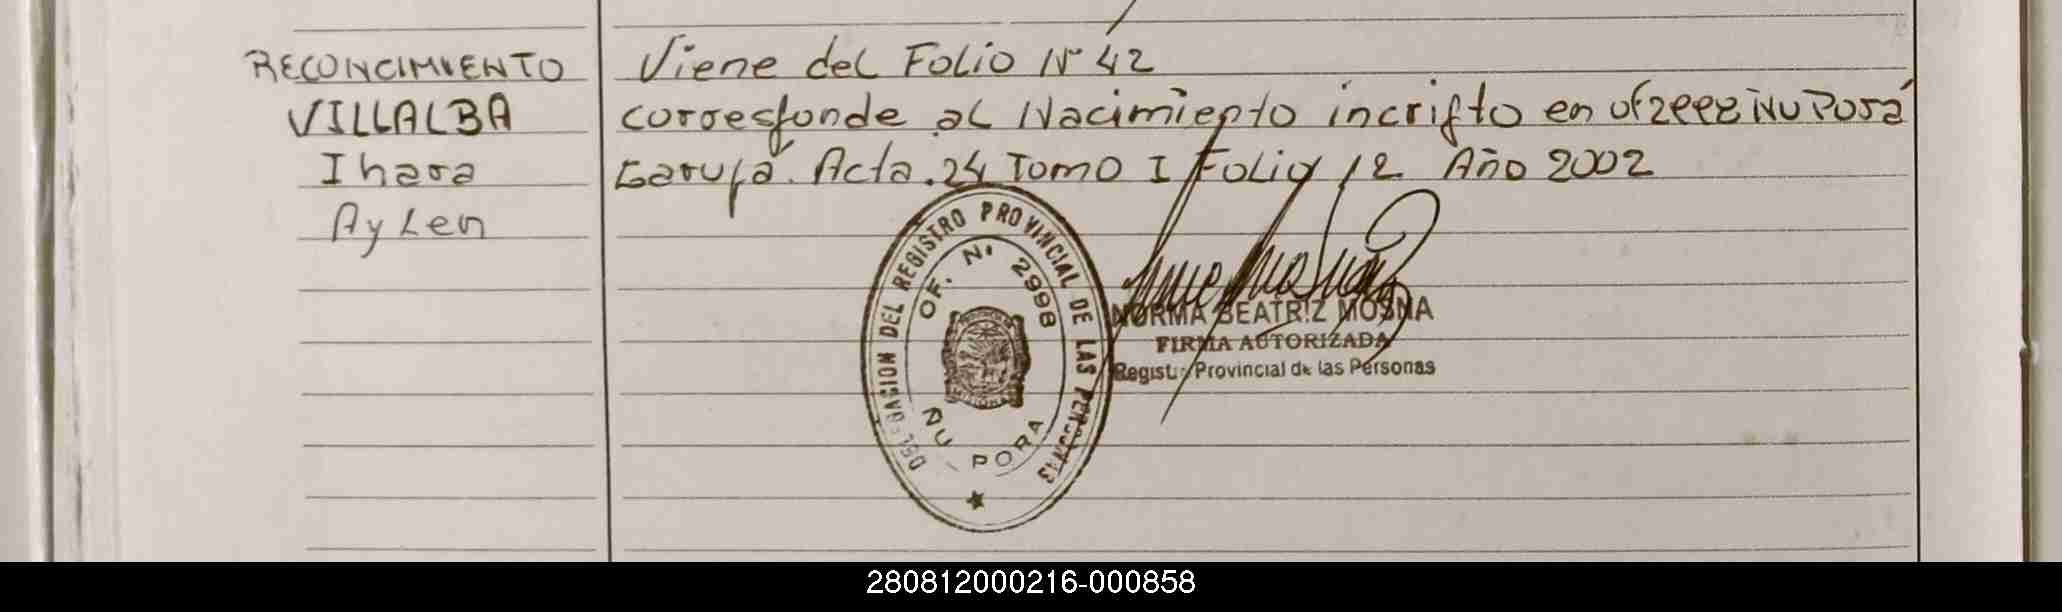 RECONCIMIENTO
VILLALBA
Ihara
Aylen
Viene del Folio N° 42
corresponde al Nacimiento incripto en of2998 ÑU Porá
Garupá. Acta. 24 Tomo I Folio 12 Año 2002
DELEGACION DEL REGISTRO PROVINCIAL DE LAS PERSONAS
OF. N° 2998
ÑU - PORA
NORMA BEATRIZ MOSNA
FIRMA AUTORIZADA
Registro Provincial de las Personas
280812000216-000858